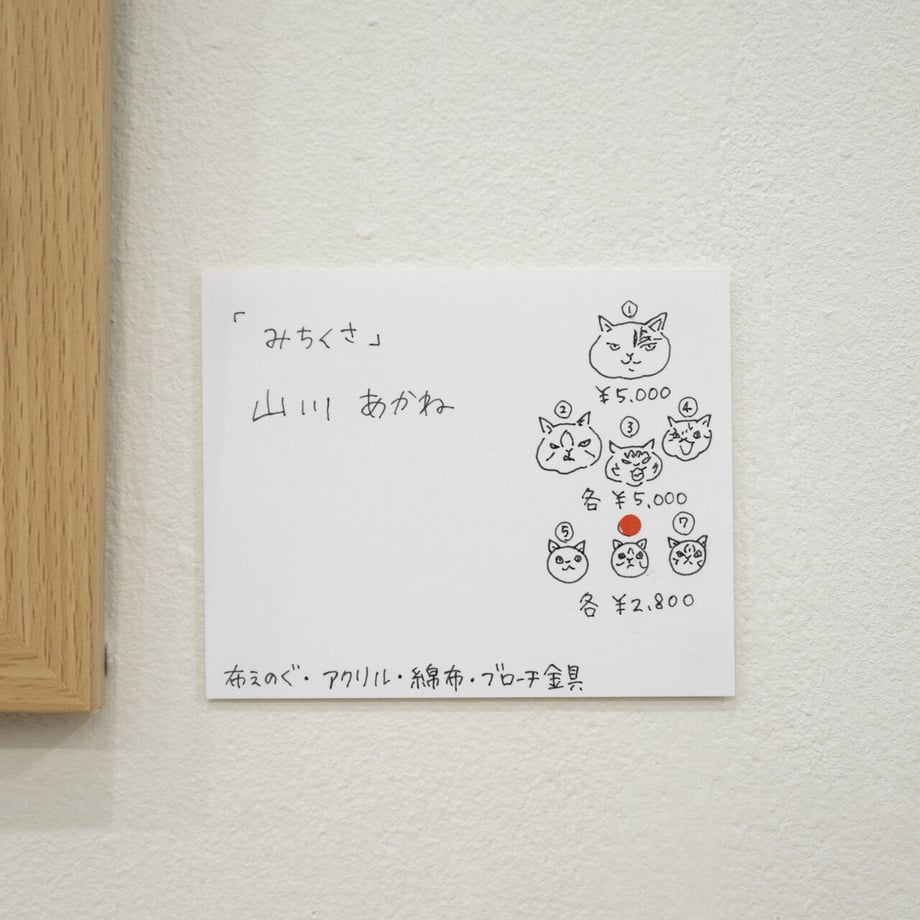 「みちくさ」
山川 あかね
①
¥5,000
② ③ ④
各 ¥5,000
⑤ ⑦
各 ¥2,800
布えのぐ・アクリル・綿布・ブローチ金具